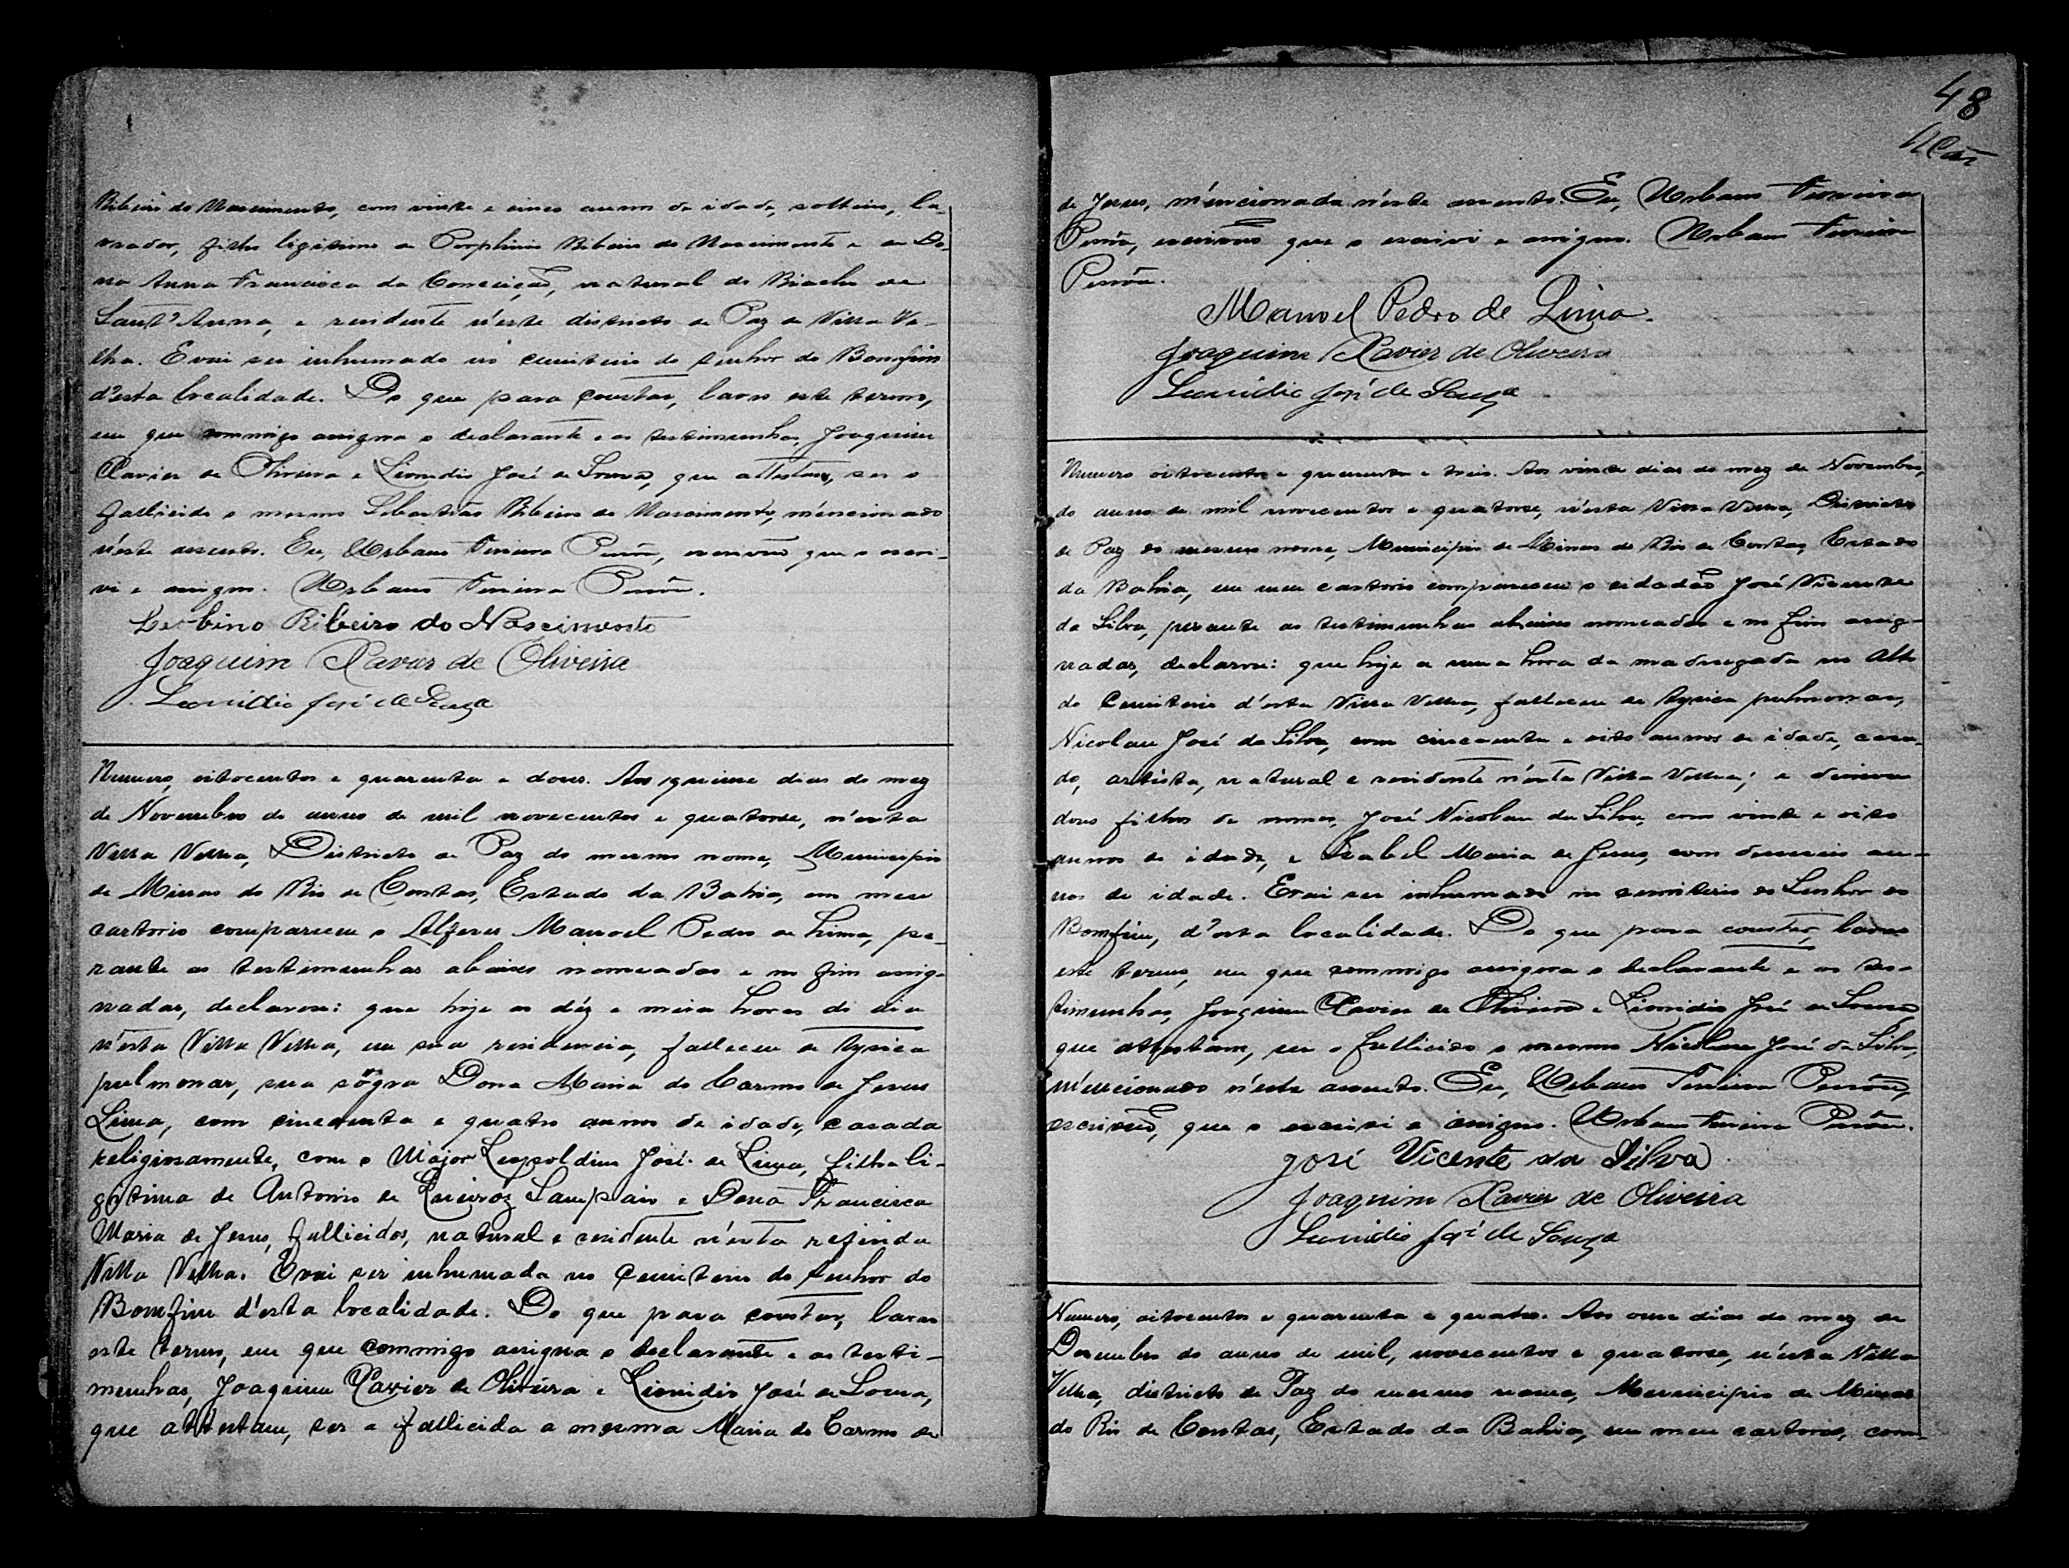 Ribeiro do Nascimento, com vinte e cinco annos de idade, solteiro, la-
vrador, filho ligitimo de Porphirio Ribeiro do Nascimento e de Do-
na Anna Francisca da Conceição, natural do Riacho de
Sant'Anna, e residente n'este districto de Paz de Villa Ve-
lha. E vai ser inhumado no cemiterio do Senhor do Bomfim
d'esta localidade. Do que para constar, lavro este termo,
em que commigo assigna o declarante e as testimunhas, Joaquim
Xavier de Oliveira e Lionidio José de Souza, que attestam, ser o
fallicido o mesmo Sebastião Ribeiro do Nascimento, mencionado
n'este assento. Eu, Urbano Ferreira, escrivão que o escri-
vi e assigno. Urbano Ferreira
Ribeiro do Nascimento
Joaquim Xavier de Oliveira
Leonidio José de Souza
Numero, oitocentos e quarenta e dous. Aos quinse dias do mez
de Novembro do anno de mil novecentos e quatorse, n'esta
Villa Velha, Districto de Paz do mesmo nome, Municipio
de Minas do Rio de Contas, Estado da Bahia, em meu
cartorio compareceu o Alferes Manoel Pedro de Lima, pe-
rante as testimunhas abaixo nomeadas e no fim assig-
nadas, declarou: que hoje as déz e meia horas do dia
n'esta Villa Velha, em sua residencia, falleceu de tysica
pulmonar, sua sogra Dona Maria do Carmo de Jesus
Lima, com cincoenta e quatro annos de idade, casada
religiosamente, com o Major Leopoldino José de Lima, filha li-
gitima de Antonio de Queiroz Sampaio e Dona Francisca
Maria de Jesus, fallicidos, natural e residente n'esta referida
Villa Velha. E vai ser inhumada no Cemiterio do Senhor do
Bomfim d'esta localidade. Do que para constar, lavro
este termo, em que commigo assigna o declarante e as testi-
munhas, Joaquim Xavier de Oliveira e Lionidio José de Souza,
que attestam, ser a fallicida a mesma Maria do Carmo de
48
de Jesus, mencionada n'este assento. Eu, Urbano Ferreira
escrivão que o escrivi e assigno. Urbano Ferreira
Manoel Pedro de Lima
Joaquim Xavier de Oliveira
Leonidio José de Souza
Numero oitocentos e quarenta e treis. Aos vinte dias do mez de Novembro,
do anno de mil novecentos e quatorse, n'esta Villa Velha, Districto
de Paz do mesmo nome, Municipio de Minas do Rio de Contas, Estado
da Bahia, em meu cartorio compareceu o cidadão José Vicente
da Silva, perante as testimunhas abaixo nomeadas e no fim assig-
nadas, declarou: que hoje a uma hora da madrugada no Alto
do Cemiterio d'esta Villa Velha, falleceu de tysica pulmonar,
Nicolau José da Silva, com cincoenta e oito annos de idade, casa-
do, artista, natural e residente n'esta Villa Velha; e deixou
dous filhos de nomes, José Nicolau da Silva, com vinte e oito
annos de idade, e Isabel Maria de Jesus, com deseseis an-
nos de idade. E vai ser inhumado no cemiterio do Senhor do
Bomfim, d'esta localidade. Do que para constar, lavro
este termo, em que commigo assigna o declarante e as tes-
timunhas, Joaquim Xavier de Oliveira e Lionidio José de Souza
que attestam, ser o fallicido o mesmo Nicolau José da Silva,
mencionado n'este assento. Eu, Urbano Ferreira
escrivão, que o escrivi e assigno. Urbano Ferreira
José Vicente da Silva
Joaquim Xavier de Oliveira
Leonidio José de Souza
Numero, oitocentos e quarenta e quatro. Aos onse dias do mez de
Desembro do anno de mil, novecentos e quatorse, n'esta Villa
Velha, districto de Paz do mesmo nome, Municipio de Minas
do Rio de Contas, Estado da Bahia, em meu cartorio, com-